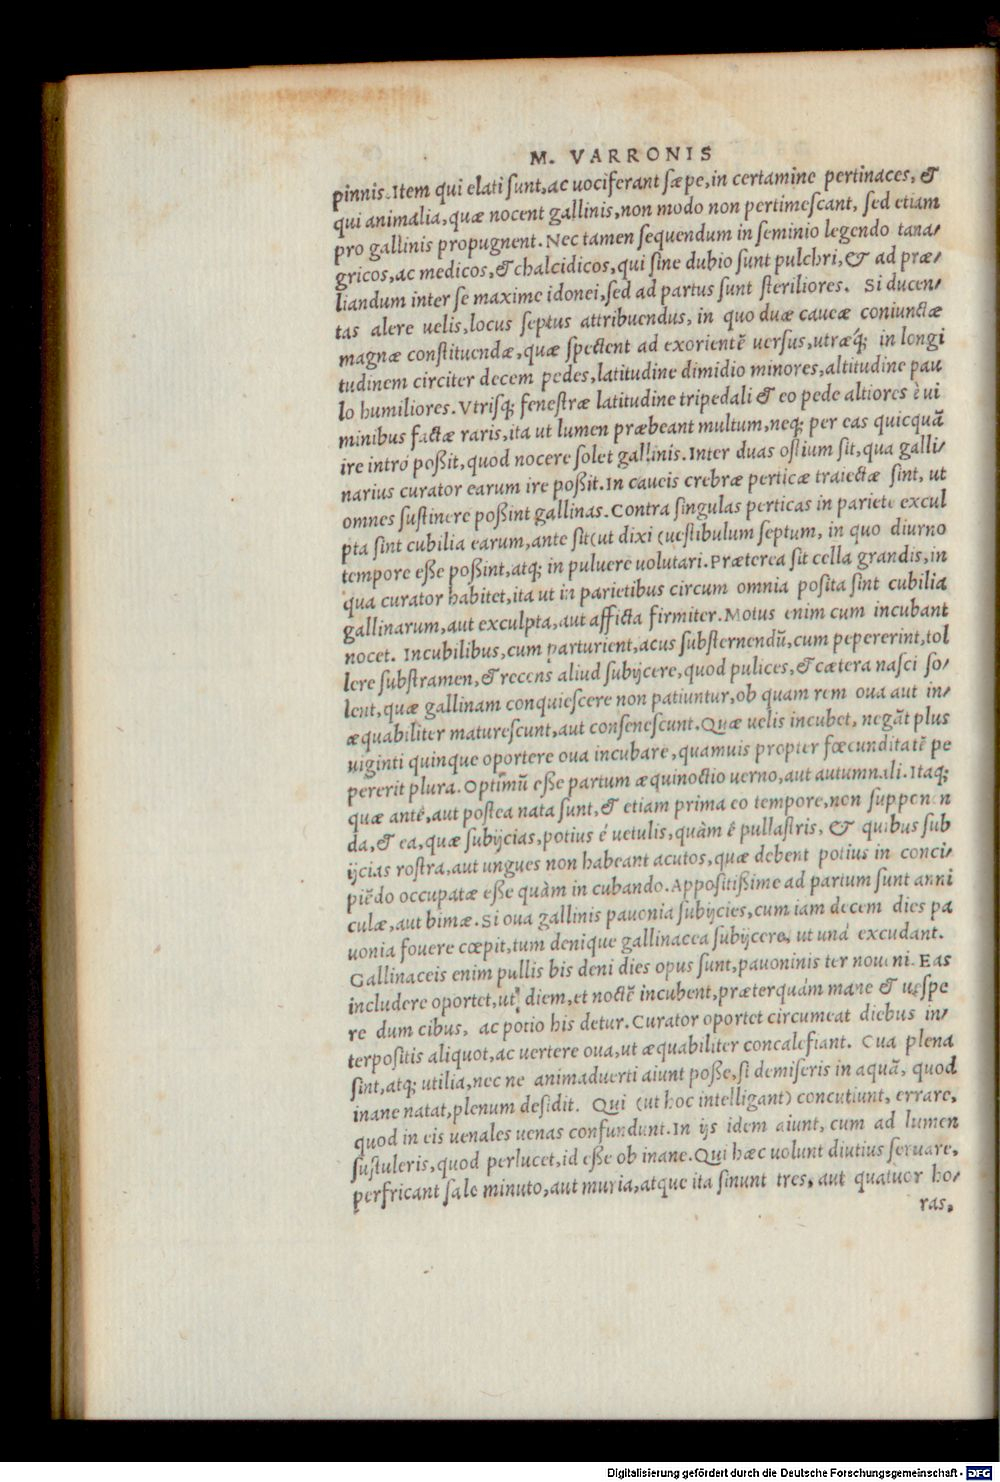 M. VARRONIS
pinnis. Item qui elati sunt, ac uociferant sæpe, in certamine pertinaces, &
qui animalia, quæ nocent gallinis, non modo non pertimescant, sed etiam
pro gallinis propugnent. Nec tamen sequendum in seminio legendo tana/
gricos, ac medicos, & chalcidicos, qui sine dubio sunt pulchri, & ad præ/
liandum inter se maxime idonei, sed ad partus sunt steriliores. Si ducen/
tas alere uelis, locus septus attribuendus, in quo duæ caueæ coniunctæ
magnæ constituendæ, quæ spectent ad exorientẽ uersus, utræq; in longi
tudinem circiter decem pedes, latitudine dimidio minores, altitudine pau
lo humiliores. Vtrisq; fenestræ latitudine tripedali & eo pede altiores è ui
minibus factæ raris, ita ut lumen præbeant multum, neq; per eas quicquã
ire intro poßit, quod nocere solet gallinis. Inter duas ostium sit, qua galli/
narius curator earum ire poßit. In caueis crebræ perticæ traiectæ sint, ut
omnes sustinere poßint gallinas. Contra singulas perticas in pariete excul
pta sint cubilia earum, ante sit (ut dixi (uestibulum septum, in quo diurno
tempore eße poßint, atq; in puluere uolutari. Præterea sit cella grandis, in
qua curator habitet, ita ut in parietibus circum omnia posita sint cubilia
gallinarum, aut exculpta, aut afficta firmiter. Motus enim cum incubant
nocet. Incubilibus, cum parturient, acus substernendũ, cum pepererint, tol
lere substramen, & recens aliud subijcere, quod pulices, & cætera nasci so/
lent, quæ gallinam conquiescere non patiuntur, ob quam rem oua aut in/
æquabiliter maturescunt, aut consenescunt. Quæ uelis incubet, negãt plus
uiginti quinque oportere oua incubare, quamuis propter fœcunditatẽ pe
pererit plura. Optimũ eße partum æquinoctio uerno, aut autumnali. Itaq;
quæ ante, aut postea nata sunt, & etiam prima eo tempore, non supponen
da, & ea, quæ subijcias, potius é uetulis, quàm é pullastris, & quibus sub
ijcias rostra, aut ungues non habeant acutos, quæ debent potius in conci/
piẽdo occupatæ eße quàm in cubando. Appositißime ad partum sunt anni
culæ, aut bimæ. Si oua gallinis pauonia subijcies, cum iam decem dies pa
uonia fouere cœpit, tum denique gallinacea subijcere, ut unà excudant.
Gallinaceis enim pullis bis deni dies opus sunt, pauoninis ter noueni. Eas
includere oportet, ut diem, et noctẽ incubent, præterquàm mane & uespe
re dum cibus, ac potio his detur. Curator oportet circumeat diebus in/
terpositis aliquot, ac uertere oua, ut æquabiliter concalefiant. Oua plena
sint, atq; utilia, nec ne animaduerti aiunt poße, si demiseris in aquã, quod
inane natat, plenum desidit. Qui (ut hoc intelligant) concutiunt, errare,
quod in eis uenales uenas confundunt. In ijs idem aiunt, cum ad lumen
sustuleris, quod perlucet, id eße ob inane. Qui hæc uolunt diutius seruare,
perfricant sale minuto, aut muria, atque ita sinunt tres, aut quatuor ho/
ras.
Digitalisierung gefördert durch die Deutsche Forschungsgemeinschaft - DFG